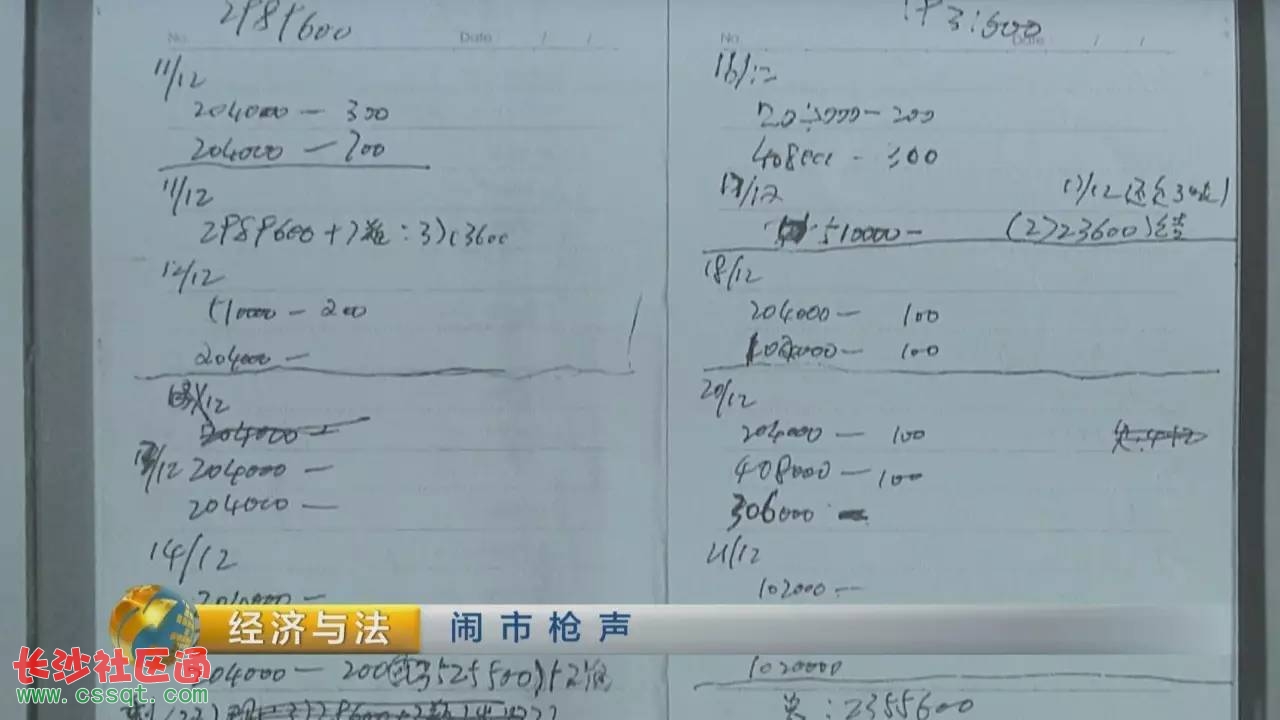 2989600
No.
Date / /
11/12
204000 — 300
204000 — 200
11/12
2989600+2
12/12
51000 — 200
204000 —
12
204000 —
13/12 204000 —
204000 —
14/12
204000 —
204000 — 200
3525500
No.
Date / /
16/12
204000 — 200
408000 - 300
17/12
17/12还
510000 —
(2223600)
18/12
204000 — 100
102000 — 100
20/12
204000 — 100
408000 — 100
306000
21/12
102000 —
1020000
总:2355600
经济与法
闹市枪声
长沙社区通
www.cssqt.com